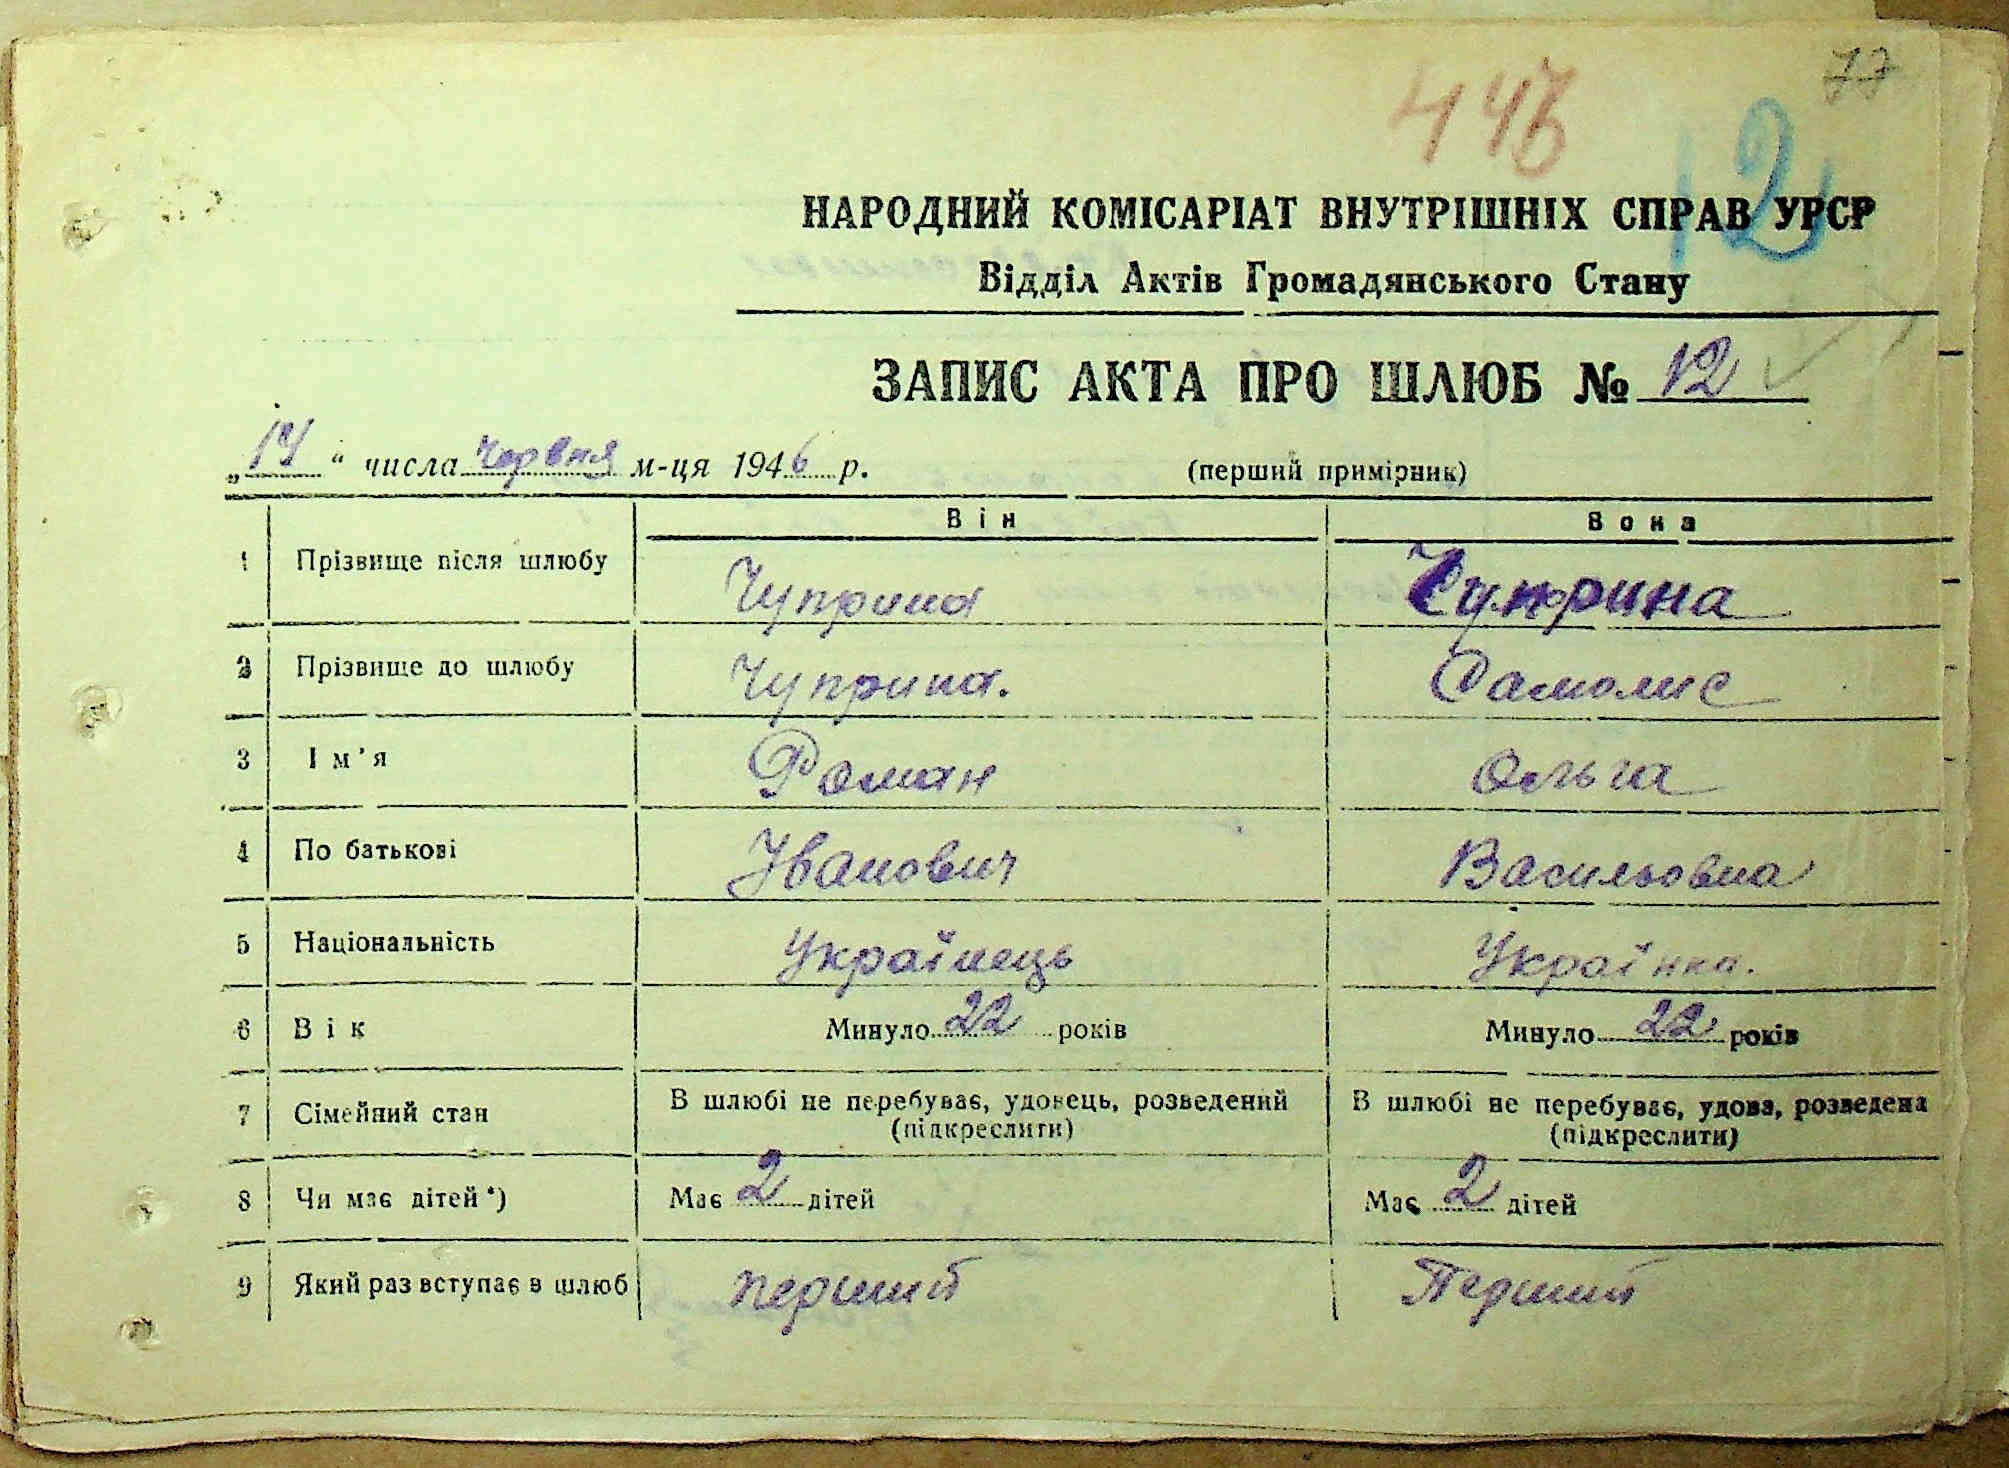 77
446
12
НАРОДНИЙ КОМІСАРІАТ ВНУТРІШНІХ СПРАВ УРСР
Відділ Актів Громадянського Стану
ЗАПИС АКТА ПРО ШЛЮБ № 12
„14“ числа червня м-ця 1946 р. (перший примірник)
Він Вона
1 Прізвище після шлюбу Чуприна Чуприна
2 Прізвище до шлюбу Чуприна. Самолис
3 Ім'я Роман Ольга
4 По батькові Іванович Васильовна
5 Національність Українець Українка.
6 Вік Минуло 22 років Минуло 22 років
7 Сімейний стан В шлюбі не перебуває, удовець, розведений В шлюбі не перебуває, удова, розведена
(підкреслити) (підкреслити)
8 Чи має дітей*) Має 2 дітей Має 2 дітей
9 Який раз вступає в шлюб перший Перший